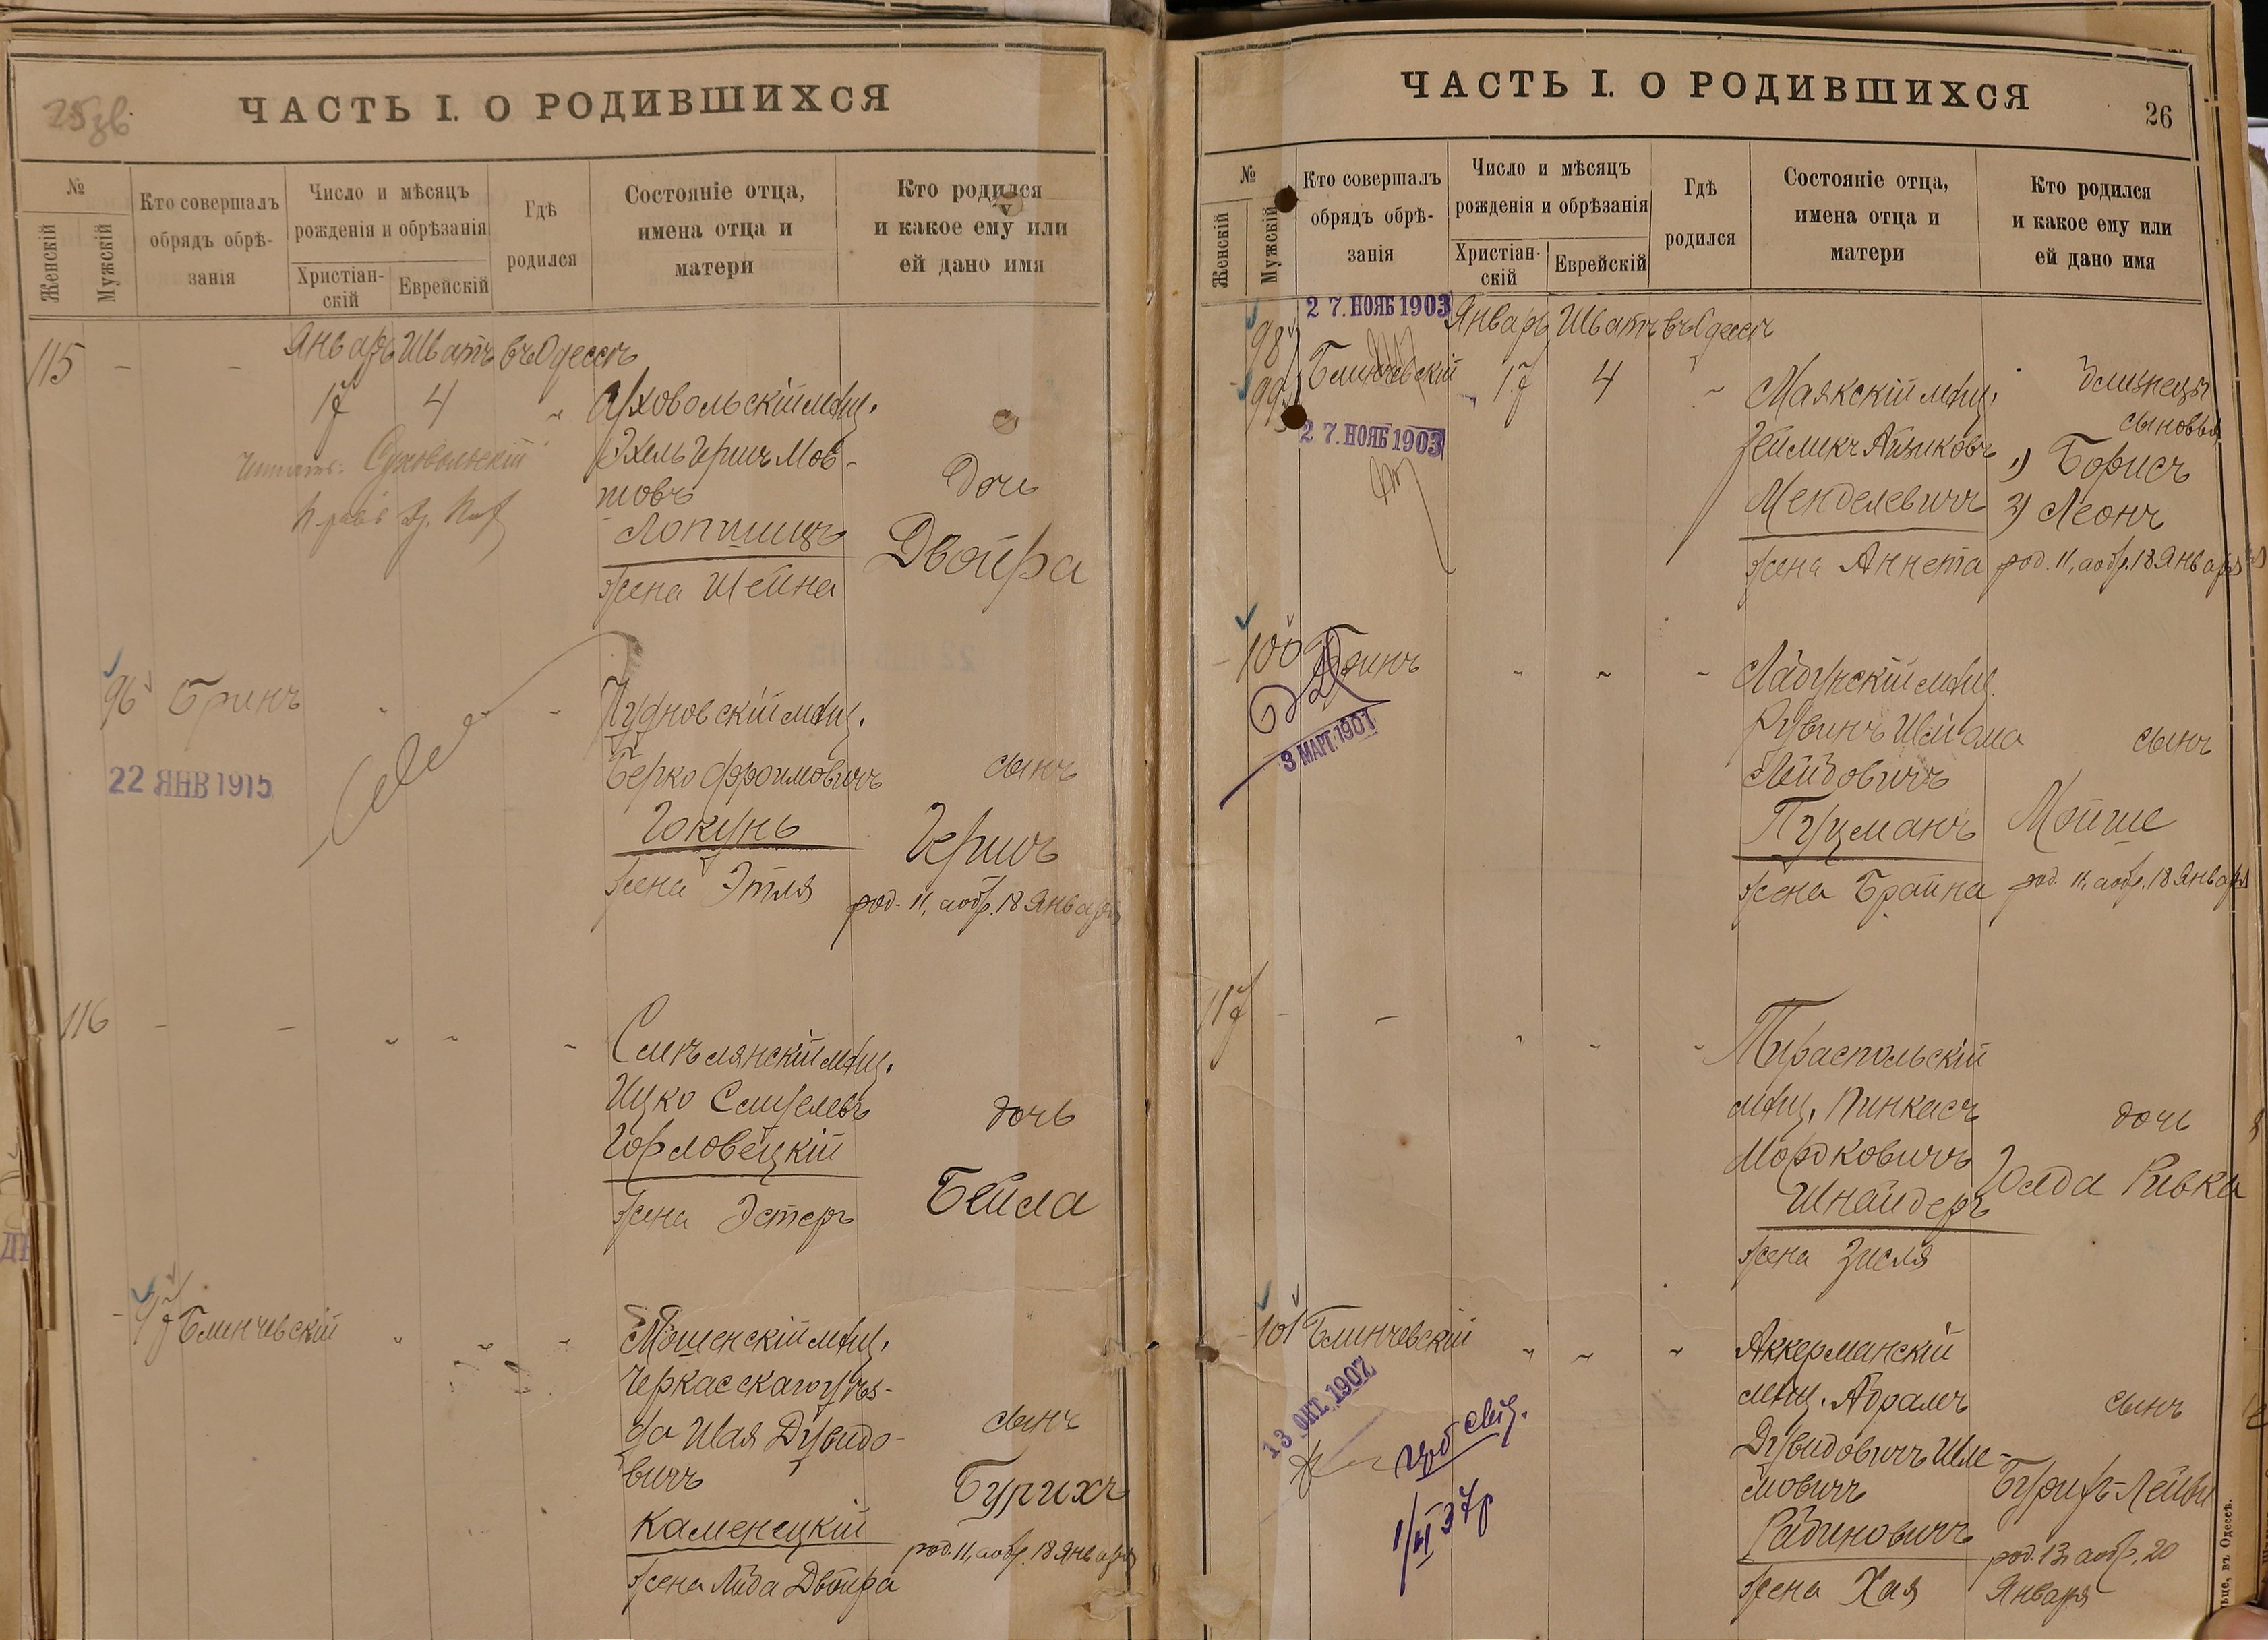 25 зв.
ЧАСТЬ I. О РОДИВШИХСЯ
№
Женскій
Мужскій
Кто совершалъ
обрядъ обрѣ-
занія
Число и мѣсяцъ
рожденія и обрѣзанія
Христіан-
скій
Еврейскій
Гдѣ
родился
Состояніе отца,
имена отца и
матери
Кто родился
и какое ему или
ей дано имя
Январь Шватъ въ Одессѣ
115 - - 17 4 "
Суховольскій мѣщ.
Эхель Гершъ Мов-
шовъ
Лопшицъ
жена Шейна
дочь
Двойра
Читать: Суховольскій
96 Бринъ " " "
22 ЯНВ 1915
Чудновскій мѣщ.
Берко Фроимовичъ
Гокунь
жена Этля
сынъ
Гершъ
род. 11, а обр. 18 Января
116 - - " " "
Смѣлянскій мѣщ.
Ицко Смулевъ
Горловецкій
жена Эстеръ
дочь
Бейла
97 Блинчевскій " " "
Мошенскій мѣщ.
Черкасскаго уѣз-
да Шая Дувидо-
вичъ
Каменецкій
жена Либа Двойра
сынъ
Бурихъ
род. 11, а обр. 18 Января
ЧАСТЬ I. О РОДИВШИХСЯ
26
№
Женскій
Мужскій
Кто совершалъ
обрядъ обрѣ-
занія
Число и мѣсяцъ
рожденія и обрѣзанія
Христіан-
скій
Еврейскій
Гдѣ
родился
Состояніе отца,
имена отца и
матери
Кто родился
и какое ему или
ей дано имя
27. НОЯБ 1903
Январь Шватъ въ Одессѣ
98
99 Блинчевскій 17 4 "
27. НОЯБ 1903
Маякскій мѣщ.
Зейликъ Айзиковъ
Менделевичъ
жена Аннета
близнецы
сыновья
1) Борисъ
2) Леонъ
род. 11, а обр. 18 Января
100 Бринъ " " "
3 МАРТ. 1901
Ладунскій мѣщ.
Рувинъ Шлиома
Лейбовичъ
Пуцманъ
жена Брайна
сынъ
Мойше
род. 11, а обр. 18 Января
117 - - " " "
Тираспольскій
мѣщ. Пинкасъ
Мордковичъ
Шнайдеръ
жена Зисля
дочь
Голда Ривка
101 Блинчевскій " " "
13 ОКТ. 1907
Аккерманскій
мѣщ. Абрамъ
Дувидовичъ Шле-
мовичъ
Рабиновичъ
жена Хая
сынъ
род. 13, а обр. 20
Января